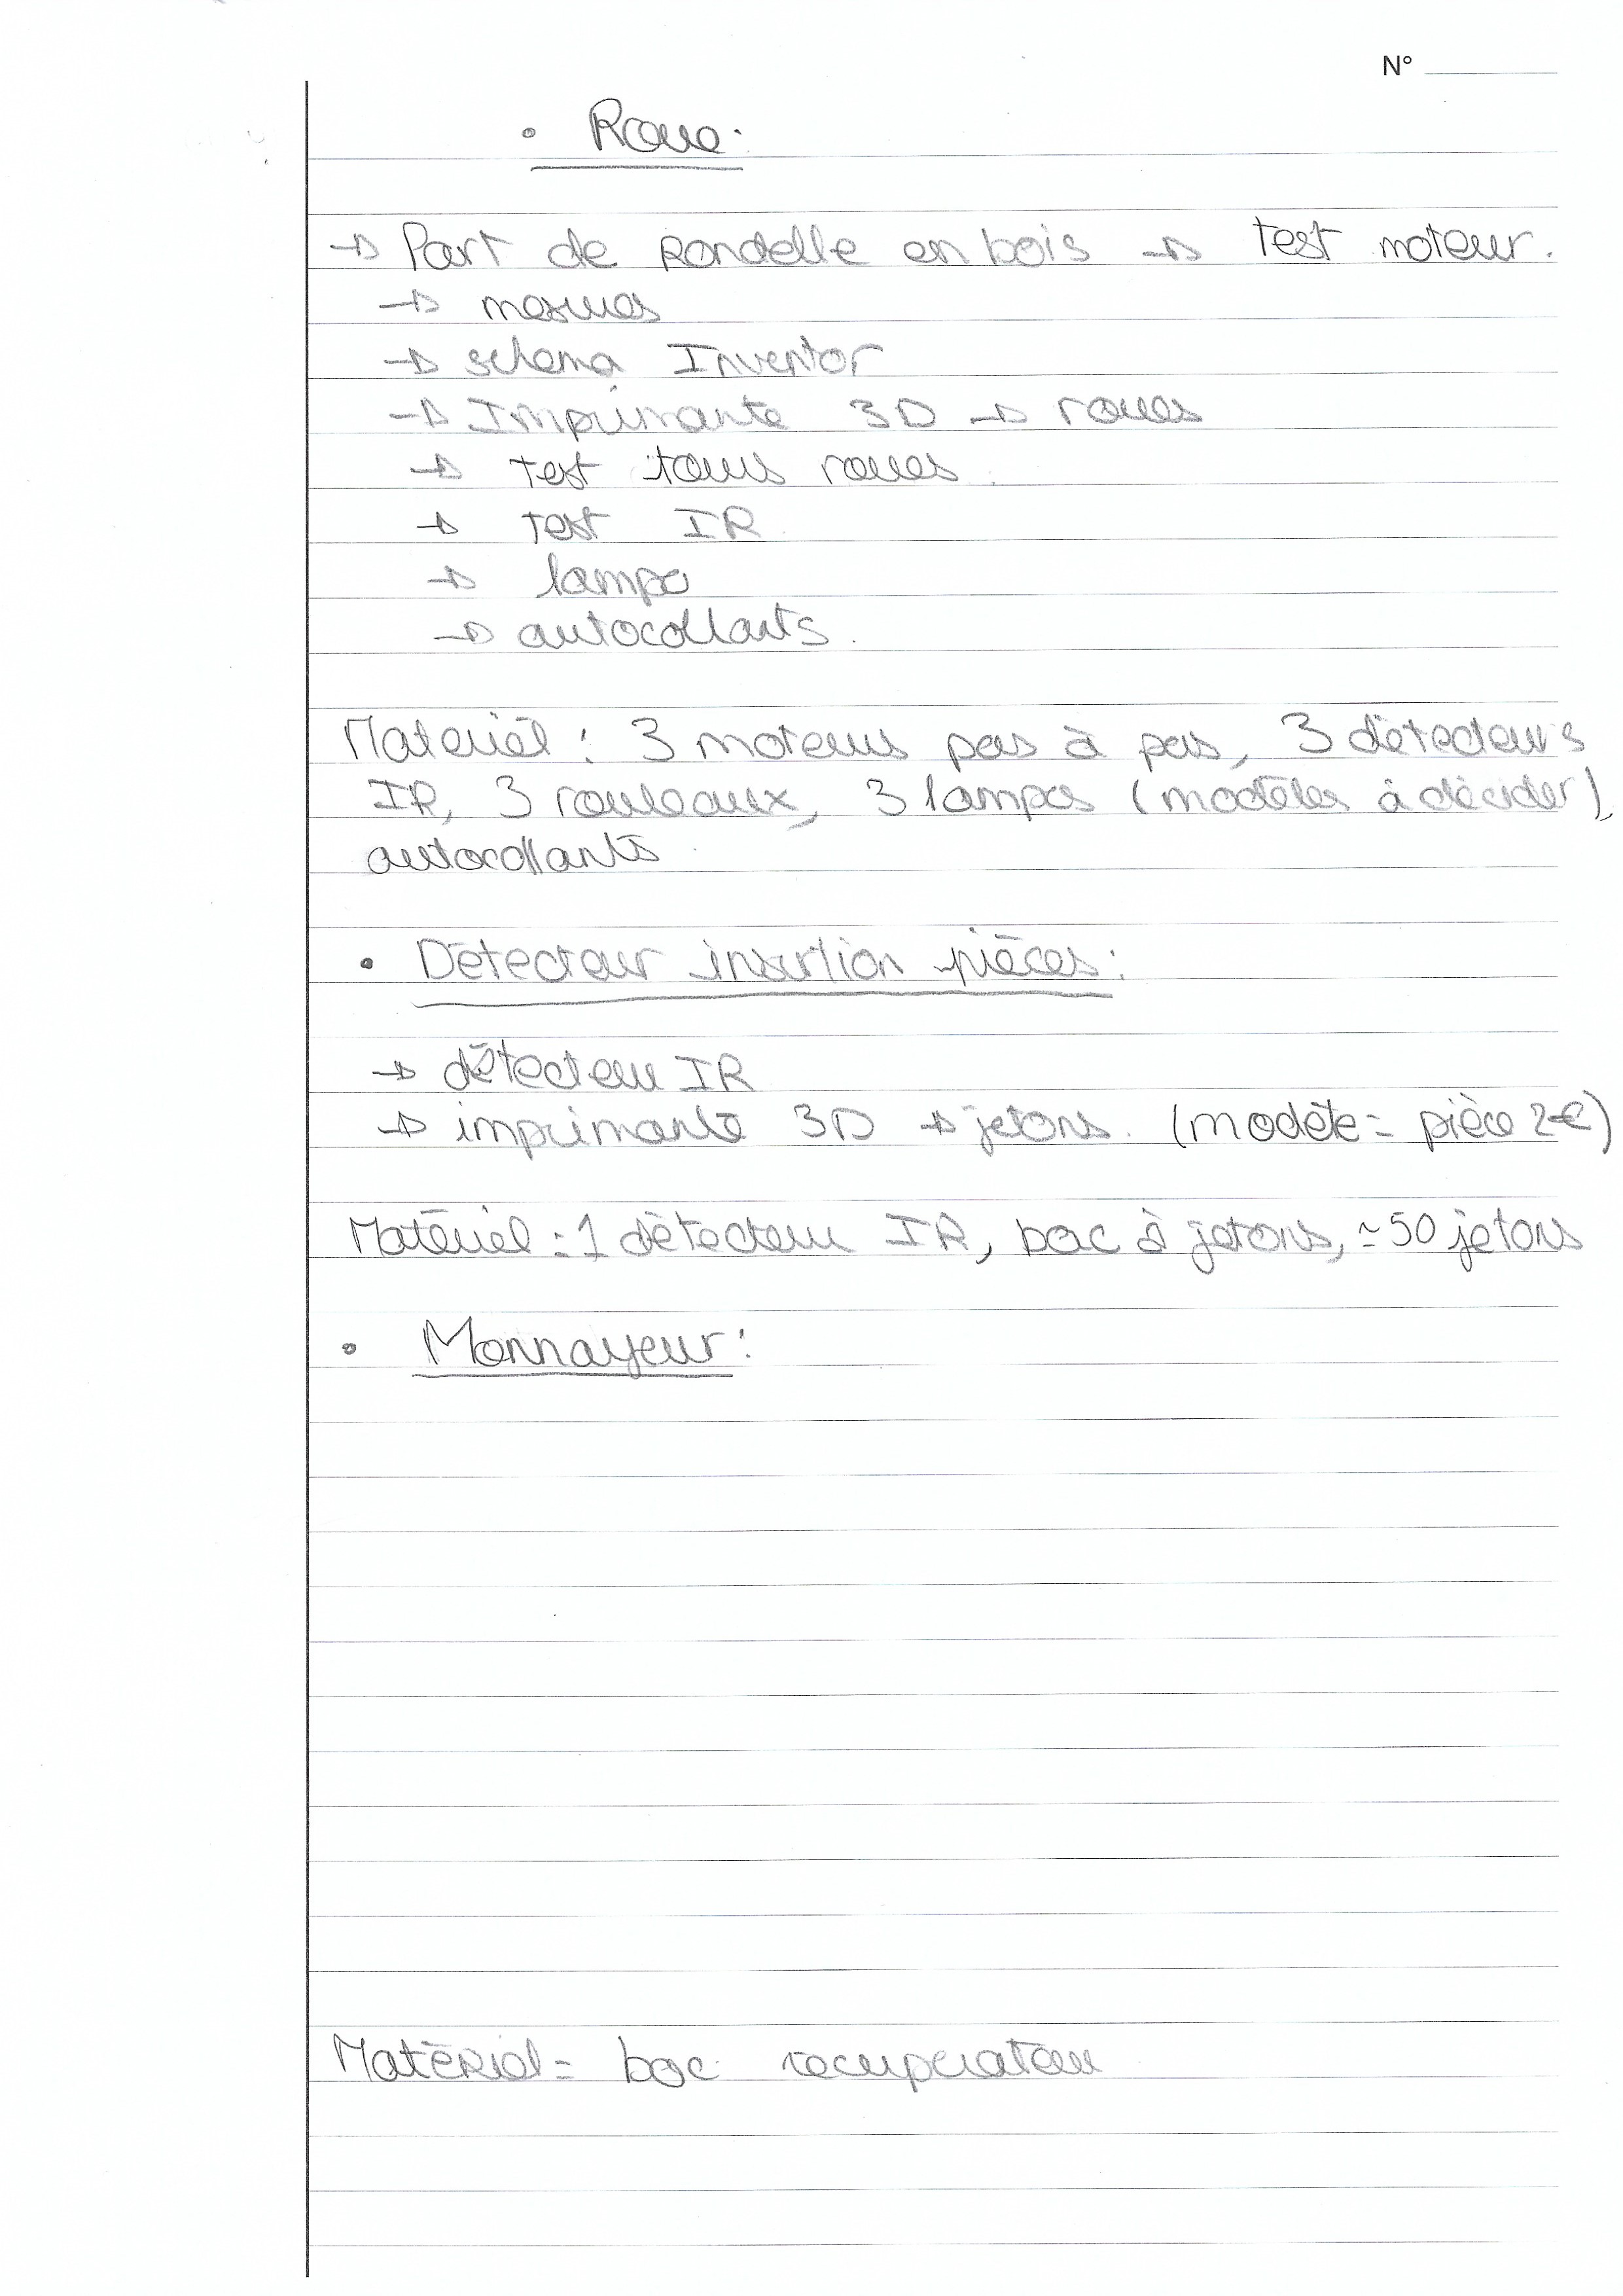 N°
• Roue.
→ Part de rondelle en bois → test moteur.
→ mesures
→ schema Inventor
→ Imprimante 3D → roues
→ test tours roues.
→ test IR
→ lampe
→ autocollants.
Materiel : 3 moteurs pas à pas, 3 détecteurs
IR, 3 rouleaux, 3 lampes (modèles à décider),
autocollants
• Détecteur insertion pièces :
→ détecteur IR
→ imprimante 3D → jetons. (modèle = pièce 2€)
Matériel : 1 détecteur IR, bac à jetons, ≃ 50 jetons
• Monnayeur :
Matériel = bac recuperateur